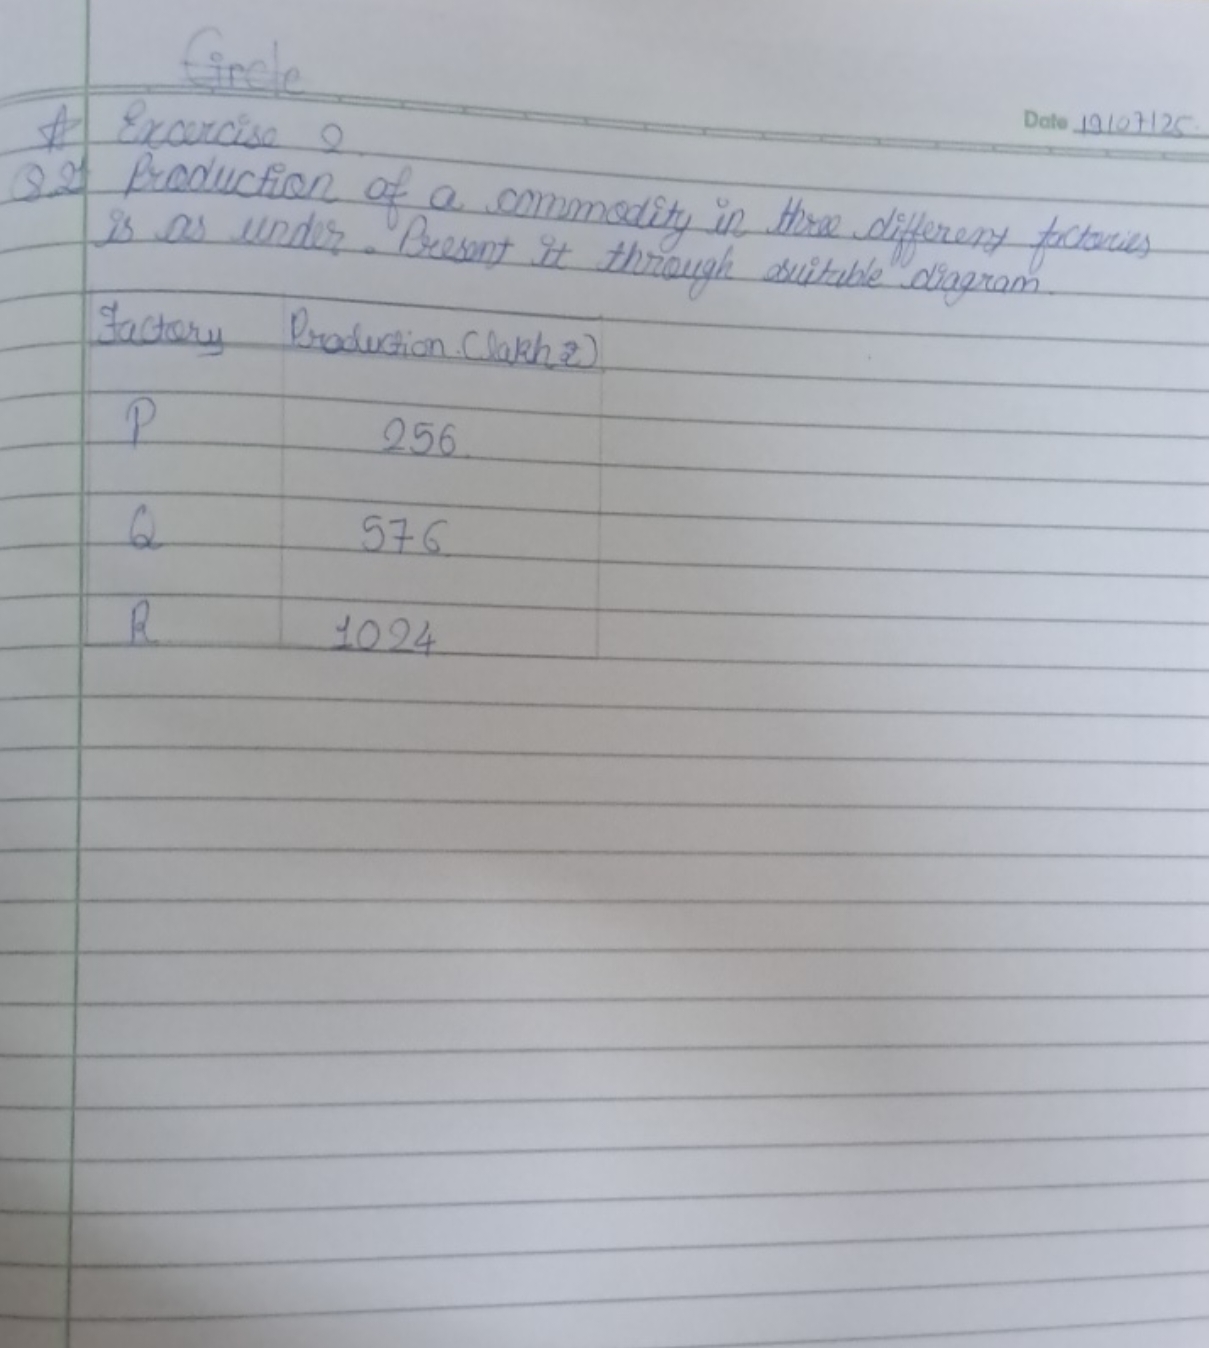 Circle
Date 19/07/25.
☆ Excercise 2
Q.2 Production of a commodity in three different factories
is as under. Present it through suitable diagram.
Factory Production (lakh ₹)
P 256
Q 576
R 1024